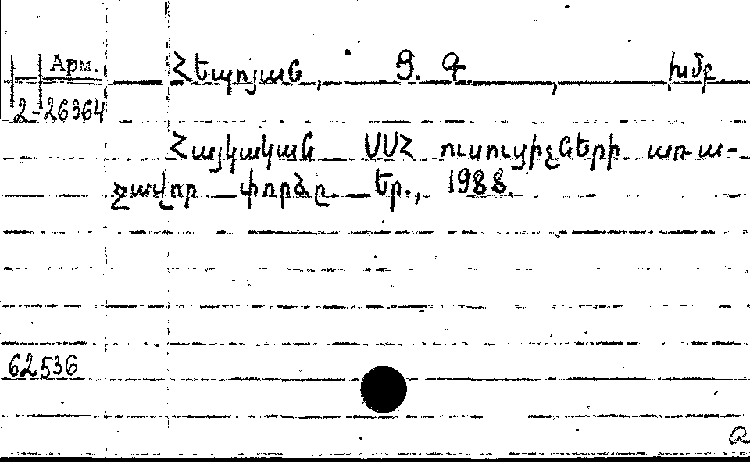 Арм. Հեպոյան, Ց. Գ. , խմբ.
2-26364
Հայկական ՍՍՀ ուսուցիչների առա-
ջավոր փորձը Եր., 1988.
62536